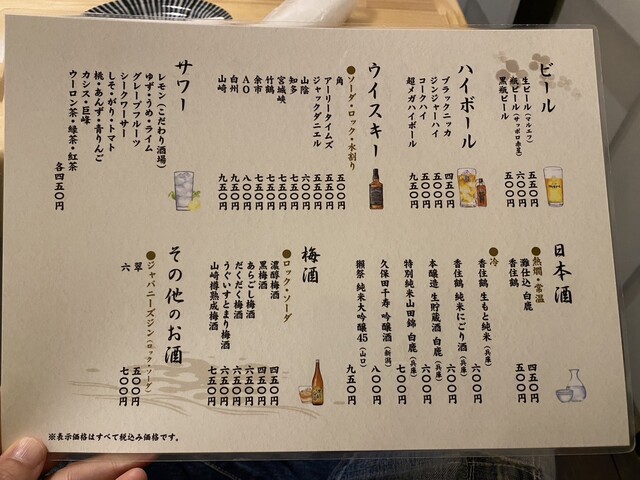 ビール
生ビール（マルエフ） 五五〇円
瓶ビール（サッポロ赤星） 六〇〇円
黒瓶ビール 五〇〇円
ハイボール
ブラックニッカ 四五〇円
ジンジャーハイ 五〇〇円
コークハイ 五五〇円
超メガハイボール 九五〇円
ウイスキー
●ソーダ・ロック・水割り
角 五〇〇円
アーリータイムズ 五五〇円
ジャックダニエル 五五〇円
山陰 六〇〇円
知多 七五〇円
宮城峡 七五〇円
竹鶴 七五〇円
余市 七五〇円
AO 八〇〇円
白州 九五〇円
山崎 九五〇円
サワー
レモン（こだわり酒場）
ゆず・うめ・ライム
グレープフルーツ
シークワーサー
しそ・がり・トマト
桃・あんず・青りんご
カシス・巨峰
ウーロン茶・緑茶・紅茶
各四五〇円
日本酒
●熱燗・常温
灘仕込 白鹿 四五〇円
香住鶴 五〇〇円
●冷
香住鶴 生もと純米（兵庫） 六〇〇円
香住鶴 純米にごり酒（兵庫） 六〇〇円
本醸造 生貯蔵酒 白鹿（兵庫） 六〇〇円
特別純米山田錦 白鹿（兵庫） 七〇〇円
久保田千寿 吟醸酒（新潟） 八〇〇円
獺祭 純米大吟醸45（山口） 九五〇円
梅酒
●ロック・ソーダ
濃醇梅酒 四五〇円
黒梅酒 四五〇円
あらごし梅酒 六五〇円
だくだく梅酒 六五〇円
うぐいすとまり梅酒 六五〇円
山崎樽熟成梅酒 七五〇円
その他のお酒
●ジャパニーズジン（ロック・ソーダ）
翠 五〇〇円
六 七〇〇円
※表示価格はすべて税込み価格です。